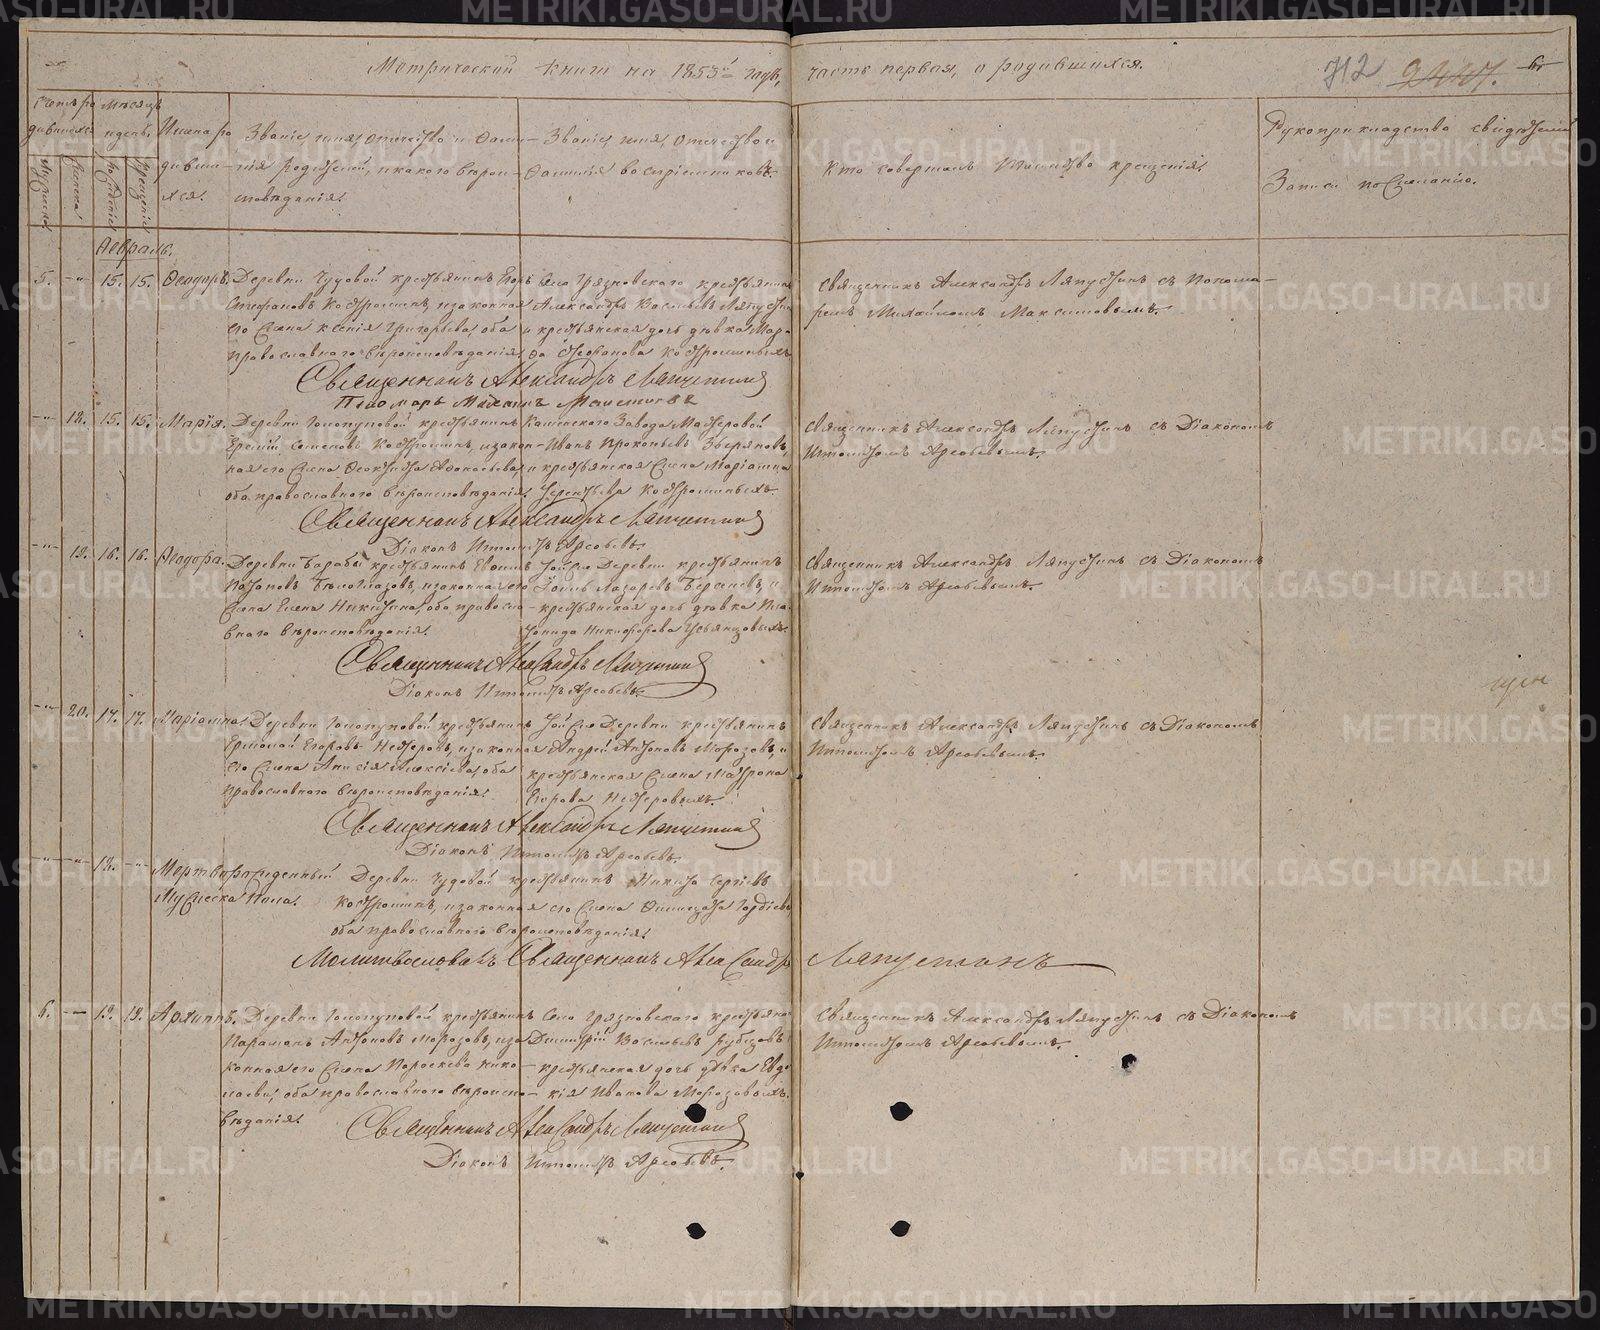 Метрической книги на 1855й годъ, часть первая, о родившихся.
712
Счетъ родившихся
Мѣсяцъ и день.
Имена родившихся.
Званіе, имя, отчество и фамилія родителей, и какого вѣроисповѣданія.
Званіе, имя, отчество и фамилія воспріемниковъ.
Кто совершалъ таинство крещенія.
Рукоприкладство свидѣтелей записи по желанію.
Февраль.
5. 15. 15. Ѳеодоръ.
Деревни Чудовой крестьянинъ Егоръ
Стефановъ Костроминъ, и законная
его жена Ксенія Григорьева, оба
православнаго вѣроисповѣданія.
Села Грязновскаго крестьянинъ
Александръ Васильевъ Ляпустинъ
и крестьянская дочь дѣвка
Костроминыхъ
Священникъ Александръ Ляпустинъ съ Понома-
ремъ Михайломъ Максимовымъ.
Священникъ Александръ Ляпустинъ
Пономарь Михаилъ Максимовъ
18. 15. 15. Марія.
Деревни Голопуповой крестьянинъ
Семеновъ Костроминъ, и закон-
ная его жена Ѳеоктиста
оба православнаго вѣроисповѣданія.
Каменскаго Завода Мастеровой
Иванъ Прокопьевъ
и крестьянская жена Маріамна
Терентьева Костроминыхъ.
Священникъ Александръ Ляпустинъ съ Діакономъ
Ипполитомъ Арефьевымъ.
Священникъ Александръ Ляпустинъ
Діаконъ Ипполитъ Арефьевъ.
19. 16. 16. Ѳеодора.
Деревни Барабы крестьянинъ
Бѣлоглазовъ, и законная его
жена Елена Никитина, оба правосла-
внаго вѣроисповѣданія.
Той же Деревни крестьянинъ
Лазаревъ Берсеневъ, и
крестьянская дочь дѣвка
Никифорова Устьянцовыхъ.
Священникъ Александръ Ляпустинъ съ Діакономъ
Ипполитомъ Арефьевымъ.
Священникъ Александръ Ляпустинъ
Діаконъ Ипполитъ Арефьевъ.
20. 17. 17. Маріамна.
Деревни Голопуповой крестьянинъ
Ермолай Егоровъ Нестеровъ, и законная
его жена Анисія Алексіева, оба
православнаго вѣроисповѣданія.
Той же Деревни крестьянинъ
Андрей Антоновъ Морозовъ, и
крестьянская жена Матрона
Егорова Нестеровыхъ.
Священникъ Александръ Ляпустинъ съ Діакономъ
Ипполитомъ Арефьевымъ.
Священникъ Александръ Ляпустинъ
Діаконъ Ипполитъ Арефьевъ.
18. Мертворожденный
мужеска пола.
Деревни Чудовой крестьянинъ Никита Сергіевъ
Костроминъ, и законная его жена
оба православнаго вѣроисповѣданія.
Молитвословилъ Священникъ Александръ Ляпустинъ
6. 19. 19. Архиппъ.
Деревни Голопуповой крестьянинъ
Парамонъ Антоновъ Морозовъ, и за-
конная его жена Параскева Нико-
лаева, оба православнаго вѣроиспо-
вѣданія.
Села Грязновскаго крестьянинъ
Димитрій Васильевъ Рубцовъ
крестьянская дочь дѣвка Евдо-
кія Иванова Морозовыхъ.
Священникъ Александръ Ляпустинъ съ Діакономъ
Ипполитомъ Арефьевымъ.
Священникъ Александръ Ляпустинъ
Діаконъ Ипполитъ Арефьевъ.
METRIKI.GASO-URAL.RU